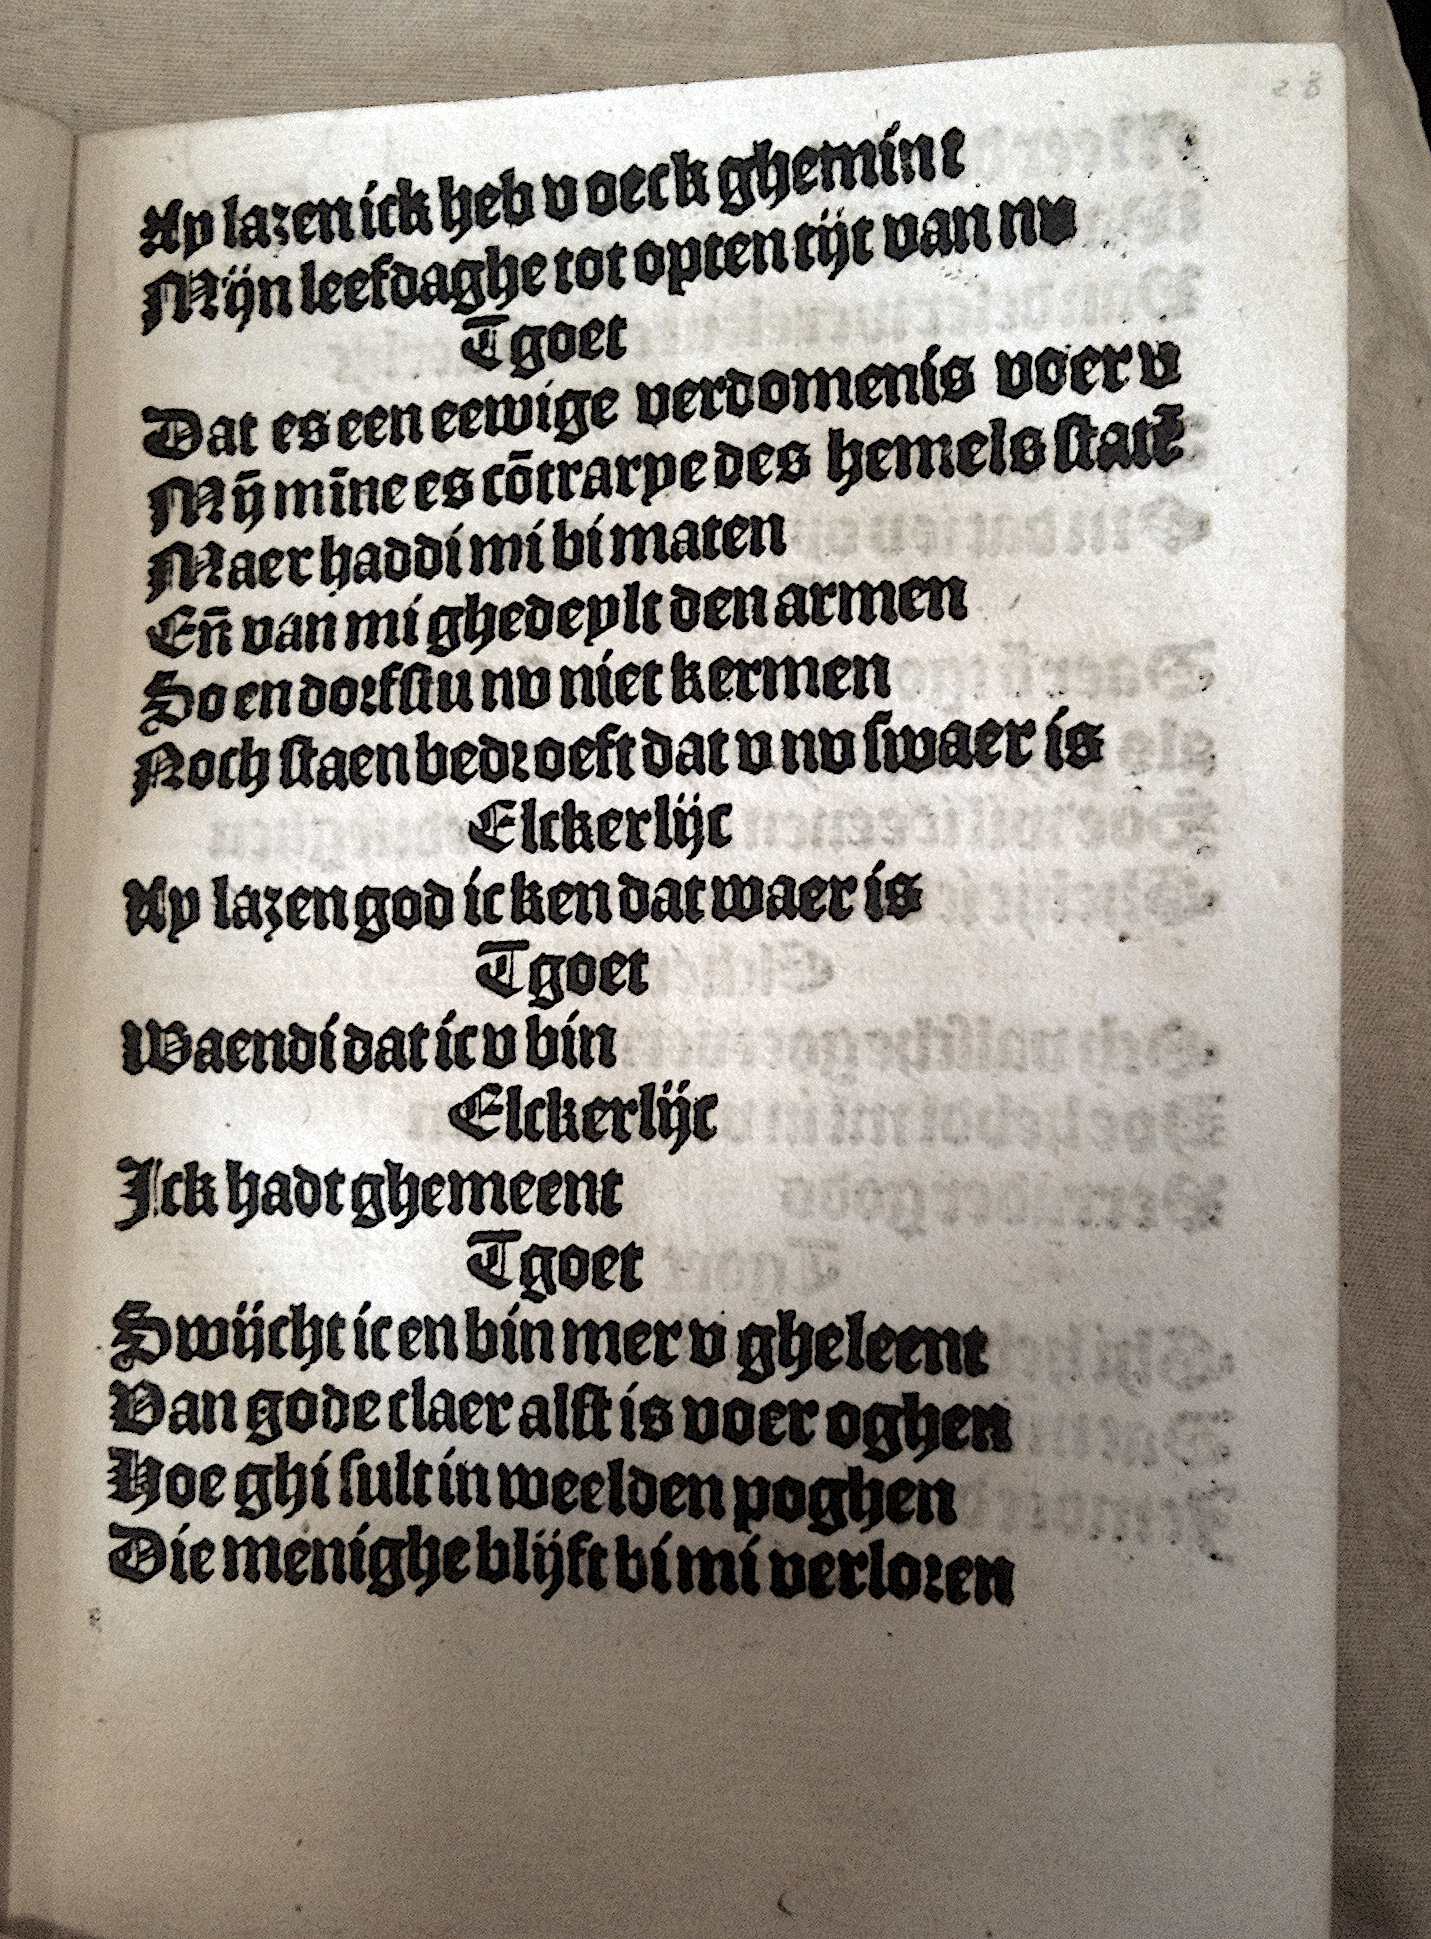 Ay lazen ick heb v oeck ghemint
Mijn leefdaghe tot opten tijt van nv
Tgoet
Dat es een eewige verdomenis voer v
Mỹ mīne es cōtrarye des hemels statē
Maer haddi mi bi maten
En̄ van mi ghedeylt den armen
So en dorfstu nv niet kermen
Noch staen bedroeft dat v nv swaer is
Elckerlijc
Ay lazen god ic ken dat waer is
Tgoet
Waendi dat ic v bin
Elckerlijc
Ick hadt ghemeent
Tgoet
Swijcht ic en bin mer v gheleent
Van gode claer alst is voer oghen
Hoe ghi sult in weelden poghen
Die menighe blijft bi mi verloren